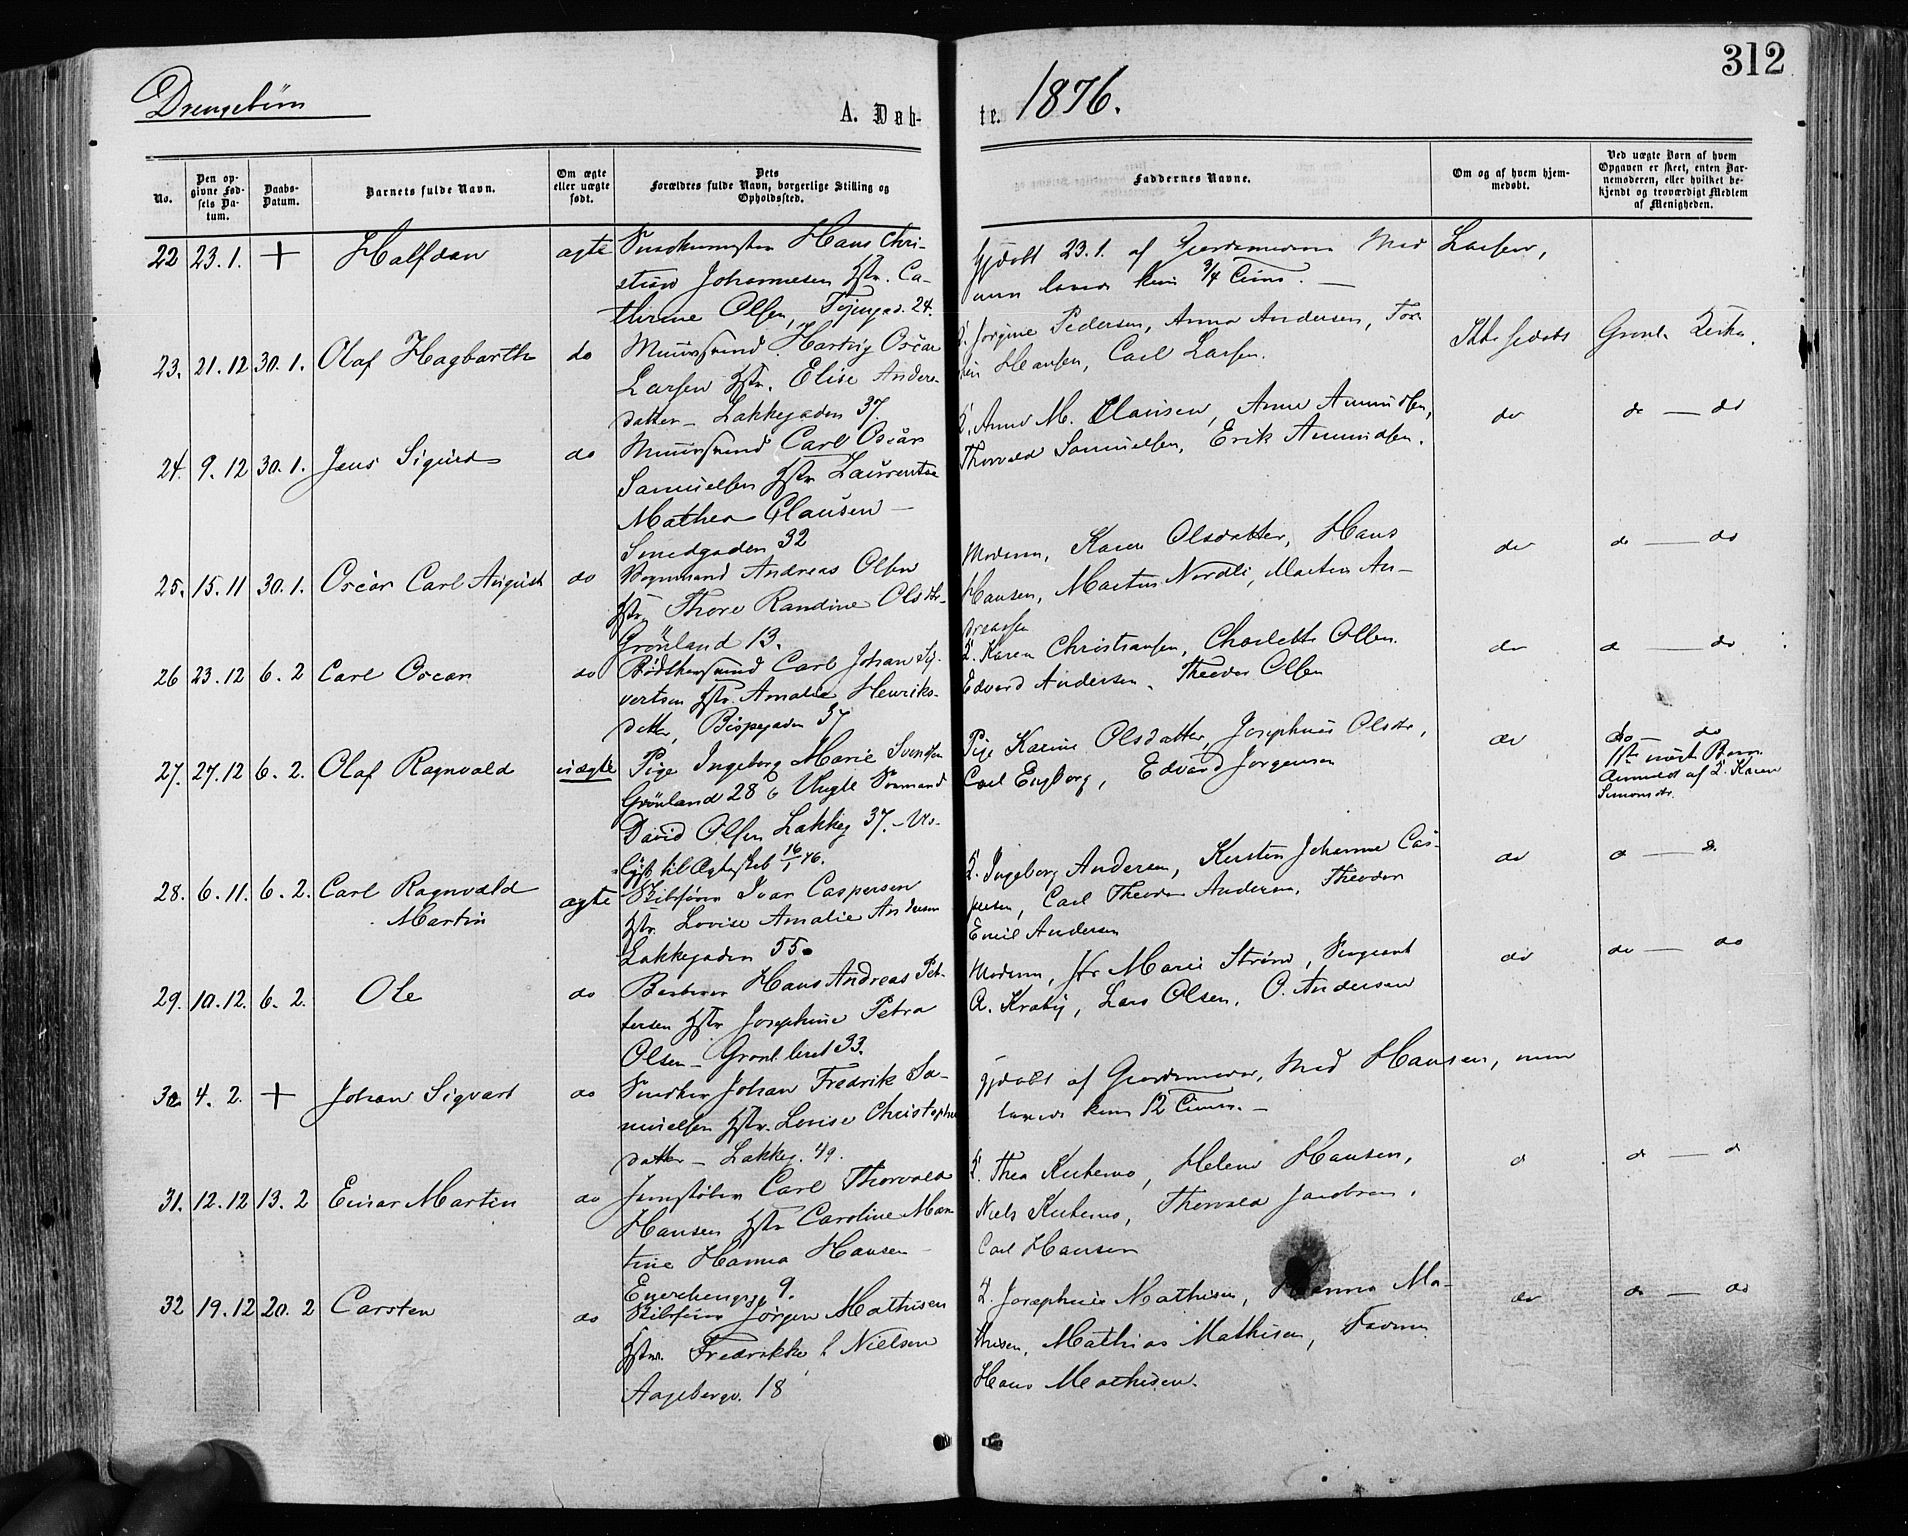 312
Drengebørn
A. Døb-
te. 1876.
No.
Den op-
givne Fød-
sels Da-
tum.
Daabs-
Datum.
Barnets fulde Navn.
Om ægte
eller uægte
født.
Dets
Forældres fulde Navn, borgerlige Stilling og
Opholdssted.
Faddernes Navne.
Om og af hvem hjem-
medøbt.
Ved uægte Børn af hvem
Opgaven er skeet, enten Bar-
nemoderen, eller hvilket be-
kjendt og troværdigt Medlem
af Menigheden.
22 23.1. + Halfdan ægte Hans Chri-
stian Johannesen Hstr. Ca-
thrine Olsen, Tøjengd. 24.
Hjdøbt 23.1. af Gjordemoderen Mad Larsen,
kun 3/4 Time. —
23. 21.12 30.1. Olaf Hagbarth do Muursvend Hartvig Oscar
Larsen Hstr. Elise Anders-
datter – Lakkegaden 37.
Jorgine Pedersen, Anna Andersen,
Hansen, Carl Larsen.
24. 9.12 30.1. Jens Sigurd do Muursvend Carl Oscar
Samuelsen Hstr Laurentse
Mathea Clausen –
Smedgaden 32
Anne M. Clausen, Anne Amundsen,
Thorvald Samuelsen, Erik Amundsen.
do do — do
25. 15.11 30.1. Oscar Carl August do Vognmand Andreas Olsen
Hstr Thore Randine Olsdtr
Grønland 13.
Moderen, Karen Olsdatter, Hans
Hansen, Martin Nordli, Martin An-
dreasen
do do — do
26 23.12 6.2 Carl Oscar do Bødkersvend Carl Johan Sy-
vertsen Hstr. Amalie Henriks-
datter, Bispegaden 37
Karen Christiansen, Charlotte Olsen.
Edvard Andersen, Theodor Olsen
do do — do
27. 27.12 6.2. Olaf Ragnvald uægte Pige Ingeborg Marie Svendsen
Grønland 28 Ungk Sømand
David Olsen Lakkeg 37. –
til Ægteskab 16/1 76.
Pige Karine Olsdatter, Josephine Olsdtr,
Carl Engborg, Edvard Jørgensen
do do — do
Anmeldt af Karen
Simonsdtr.
28. 6.11. 6.2. Carl Ragnvald
Martin
ægte Skibsfører Ivar Caspersen
Hstr. Lovise Amalie Andersen
Lakkegaden 55
Ingeborg Andersen, Kirsten Johanne Cas-
persen, Carl Theodor Andersen, Theodor
Emil Andersen
do
29. 10.12. 6.2. Ole do Barberer Hans Andreas Pet-
tersen Hstr Josephine Petra
Olsen – Grønl. leret 33.
Moderen, Jfr Marie Strøm, Sergeant
A. Kraby, Lars Olsen, O. Andersen
do do — do
30 4.2. + Johan Sigvart do Snedker Johan Fredrik Sa-
muelsen Hstr. Lovise Christophers
datter – Lakkeg. 49.
Hjdøbt af Gjordemoder, Mad Hansen,
levede kun 12 Timer. –
31. 12.12 13.2 Einar Martin do Jernstøber Carl Thorvald
Hansen Hstr Caroline Mar-
tine Hanna Hansen
Enerhougsg 9.
Thea Hansen,
Helene Hansen,
Niels Thorvald Jacobsen,
Carl Hansen
do — do
32 19.12 20.2 Carsten do Skibsfører Jørgen Mathisen
Hstr. Fredrikke f. Nielsen
Aagebergv. 18
Josephine Mathisen, Hanna Ma-
thisen, Mathias Mathisen, Faderen
Hans Mathisen.
do do — do